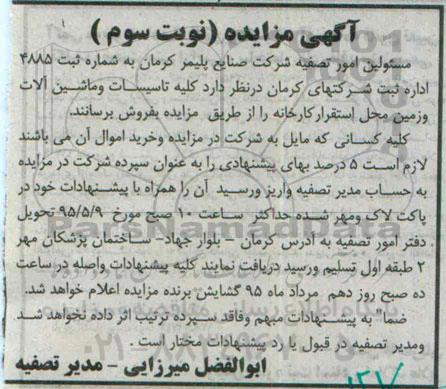 آگهی مزایده (نوبت سوم )
مسئولین امور تصفیه شرکت صنایع پلیمر کرمان به شماره ثبت ۴۸۸۵
اداره ثبت شرکتهای کرمان درنظر دارد کلیه تاسیسات وماشین آلات
وزمین محل استقرارکارخانه را از طریق مزایده بفروش برسانند.
کلیه کسانی که مایل به شرکت در مزایده وخرید اموال آن می باشند
لازم است ۵ درصد بهای پیشنهادی را به عنوان سپرده شرکت در مزایده
به حساب مدیر تصفیه واریز ورسید آن را همراه با پیشنهادات خود در
پاکت لاک ومهر شده حداکثر ساعت ۱۰ صبح مورخ ۹۵/۵/۹ تحویل
دفتر امور تصفیه به آدرس کرمان – بلوار جهاد– ساختمان پزشکان مهر
۲ طبقه اول تسلیم ورسید دریافت نمایند کلیه پیشنهادات واصله در ساعت
ده صبح روز دهم مرداد ماه ۹۵ گشایش برنده مزایده اعلام خواهد شد.
ضما" به پیشنهادات مبهم وفاقد سپرده ترتیب اثر داده نخواهد شد
ومدیر تصفیه در قبول یا رد پیشنهادات مختار است .
ابوالفضل میرزایی – مدیر تصفیه
ParsNamadData